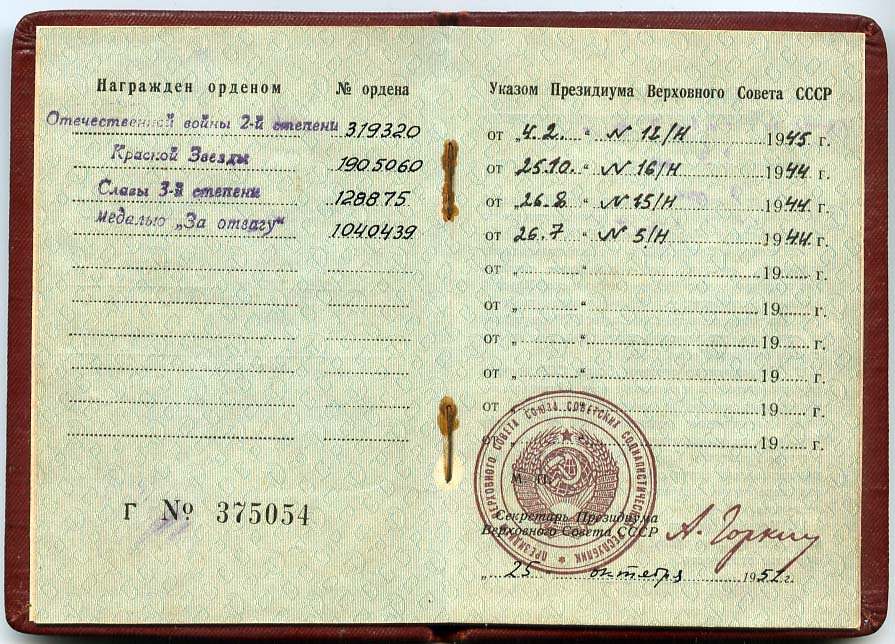 Награжден орденом
№ ордена
Отечественной войны 2-й степени 319320
Красной Звезды 1905060
Славы 3-й степени 128875
медалью „За отвагу“ 1040439
Г № 375054
Указом Президиума Верховного Совета СССР
от „4.2.“ N 12/Н 1945 г.
от „25.10.“ N 16/Н 1944 г.
от „26.8“ N 15/Н 1944 г.
от „26.7“ N 5/Н 1944 г.
от „ “ 19 г.
от „ “ 19 г.
от „ “ 19 г.
от „ “ 19 г.
от „ “ 19 г.
от „ “ 19 г.
М. П.
ПРЕЗИДИУМ ВЕРХОВНОГО СОВЕТА СОЮЗА СОВЕТСКИХ СОЦИАЛИСТИЧЕСКИХ РЕСПУБЛИК
Секретарь Президиума
Верховного Совета СССР А. Горкин
„25“ октября 1951 г.